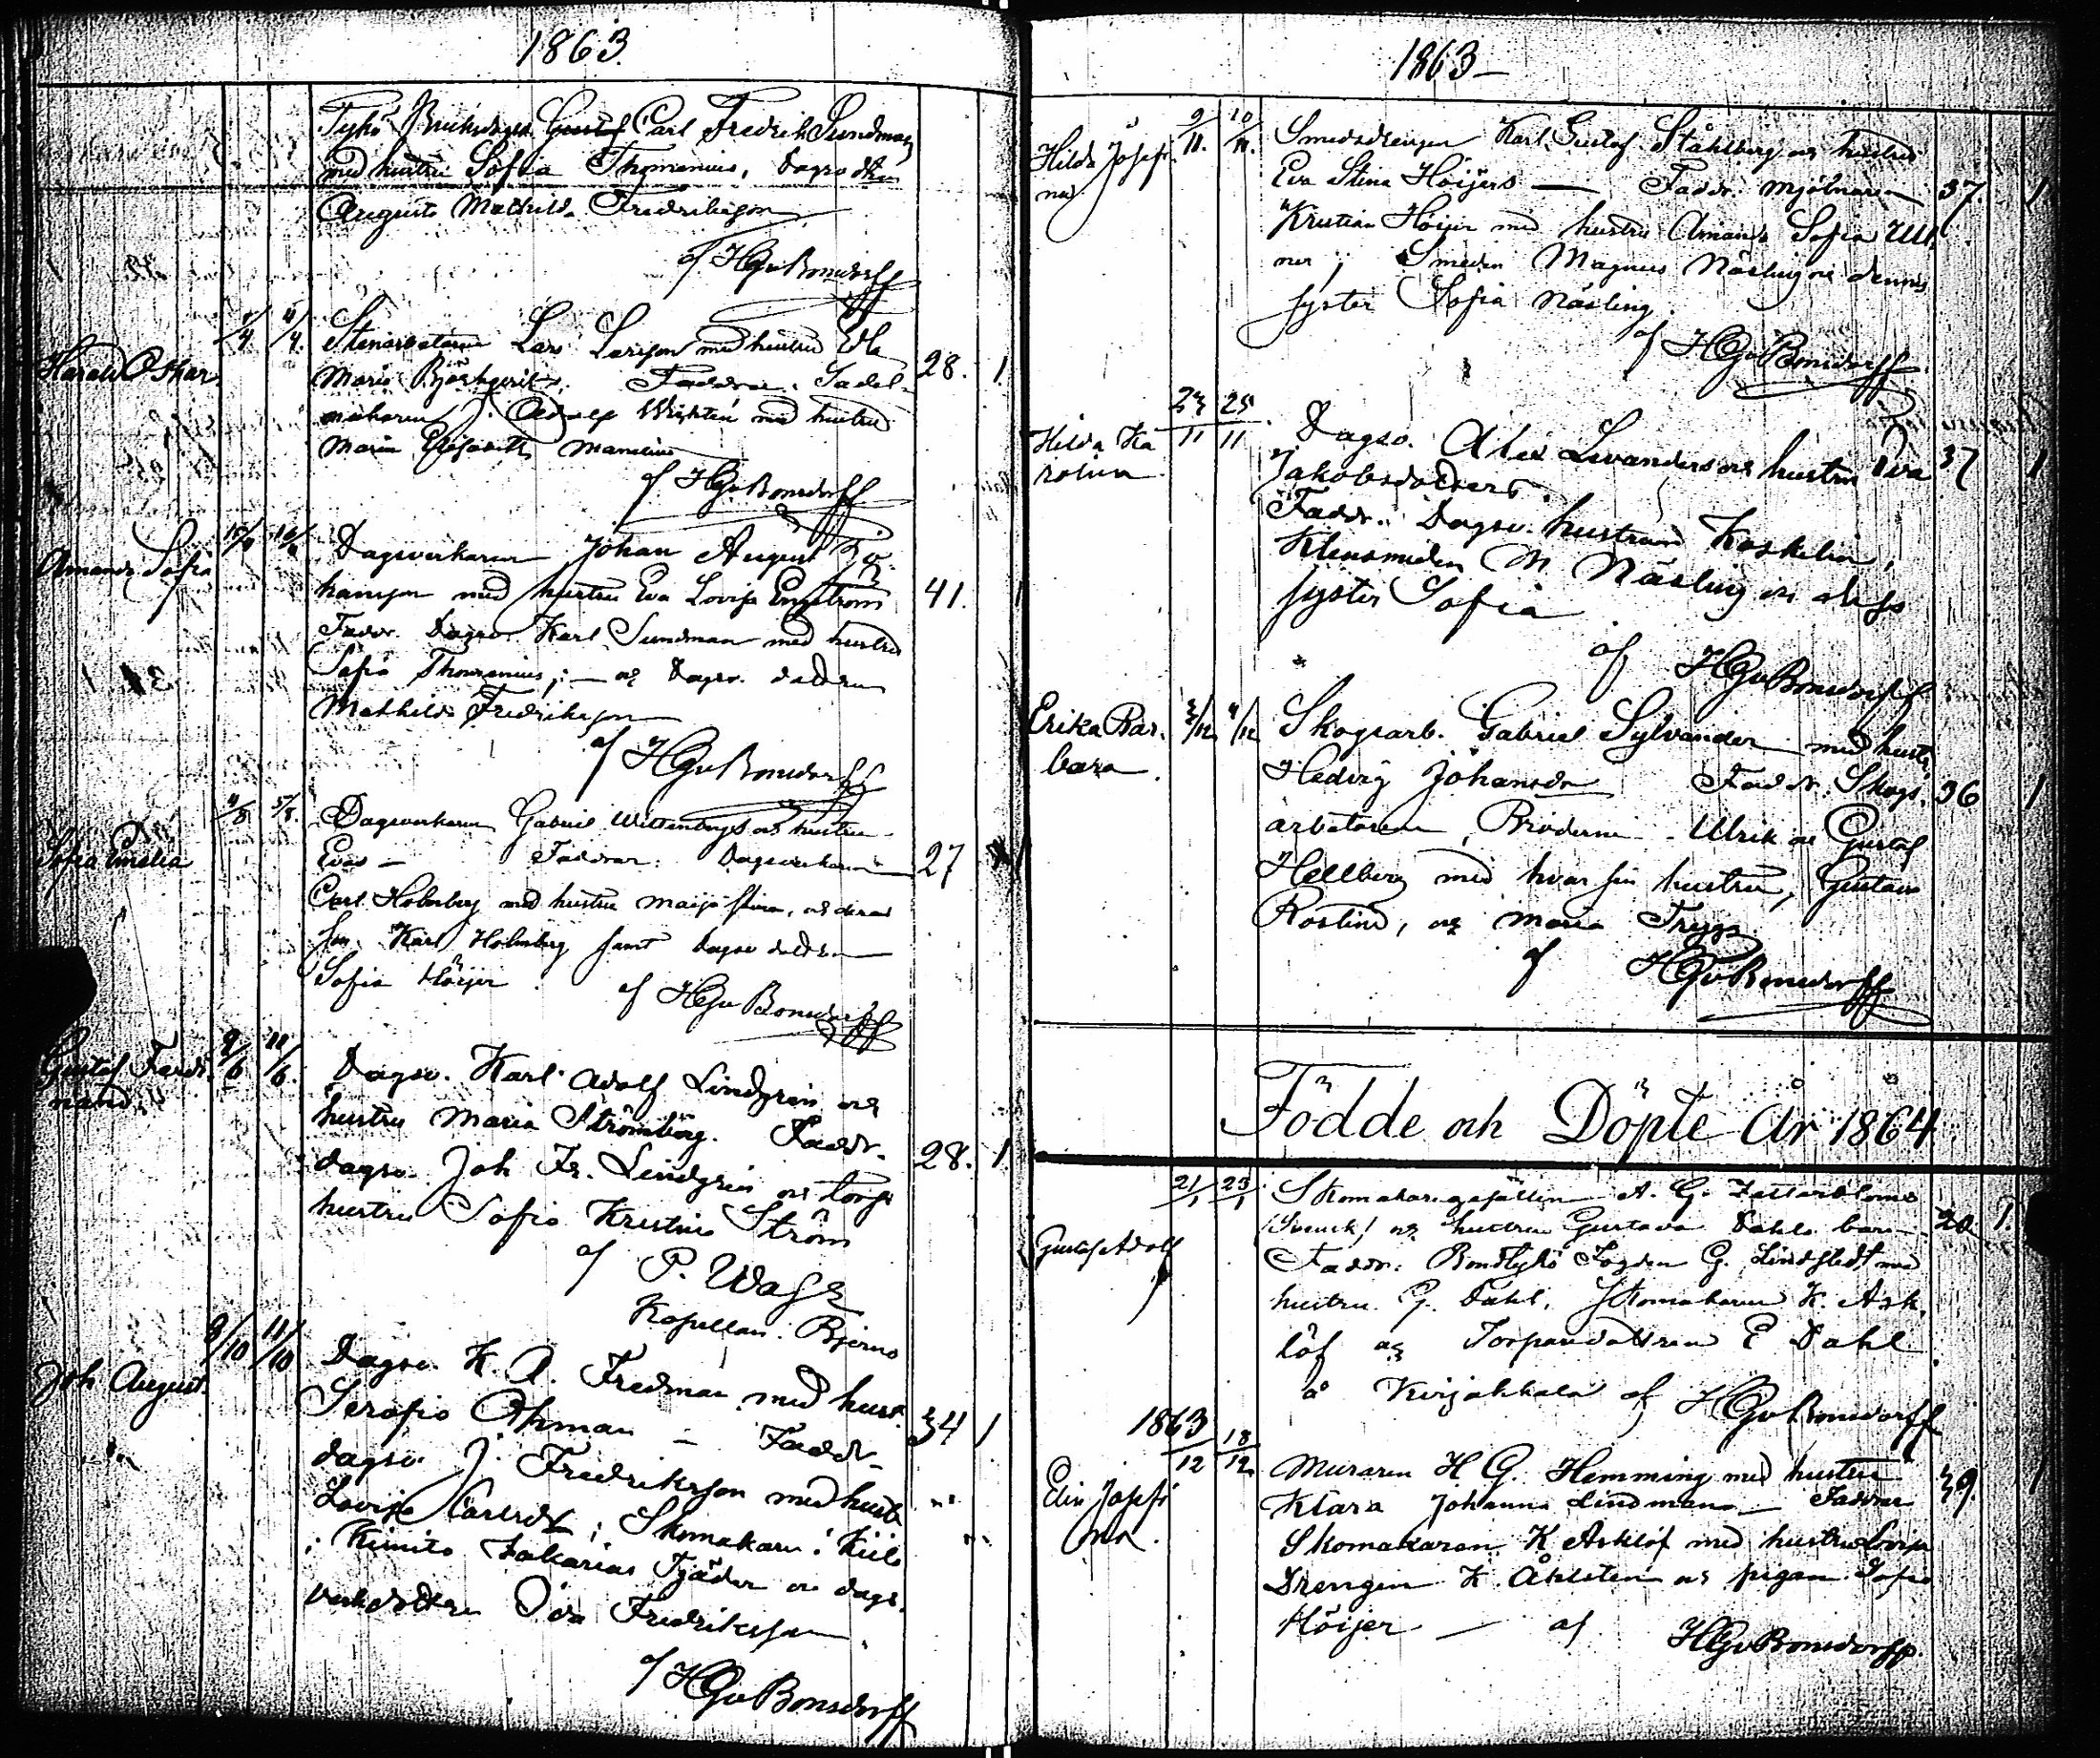 1863.
Tykö Bruksdagsk. Gustaf Carl Fredrik Sundman
med hustru Sofia Thomenius, Dagsv dttren
Augusta Mathilda Fredriksson
af HGvBonsdorff
Harald Oskar 4/4 Stenarbetaren Lars Larsson med hustru Eva
Maria Björkqvist. Faddrar. Sadel- 28. 1
makaren J. Adolf Wickten med hustru
Maria Elisabeth
af HGvBonsdorff
Amanda Sofia Dagsverkaren Johan August Jo-
hansson med hustru Eva Lovisa Engström 41. 1
Faddr. Dagsv. Karl Sundman med hustru
Sofia Thomenius; – och Dagsv. dottren
Mathilda Fredriksson
af HGvBonsdorff
4/8 5/8. Dagsverkaren Gabriel Wittenbergs och hustru
Sofia Emelia Evas – Faddrar. Dagsverkaren 27 1
Carl Holmberg med hustru Maija Stina, och deras
son Karl Holmberg samt Dagsv dottren
Sofia Höijer. af HGvBonsdorff
Gustaf Ferdi- 9/6 11/6. Dagsv. Karl Adolf Lindgren och
nand. hustru Maria Strömberg. Faddr. 28. 1
dagsv. Joh Fr. Lindgren och torp
hustru Sofia Kristina Ström
af P. Wager
Kapellan i Bjerno
Joh August. 8/10 11/10 Dagsv. K. A. Fredman med hust.
Serafia Öhman – Faddr. 34 1
dagsv. J. Fredriksson med hustr
Lovisa Carlsdr; Skomakare i Kiila
i Kimito Zakarias Tjäder och dags-
verkdottren Ida Fredriksson.
af HGvBonsdorff
1863–
Hilda Josefi- 9/11. 10/11. Smedsdrengen Karl Gustaf Ståhlberg och hustru
na Eva Stina Höijers – Faddr. mjölnaren 37. 1
Kristian Höijer med hustru Amanda Sofia Ull-
ner; Smeden Magnus Näsling och dennes
syster Sofia Näsling.
af HGvBonsdorff
Hilda Ka 23/11 25/11 Dagsv. Alex Levanders och hustru Eva 37 1
rolina Jakobsdotters.
Faddr. Dagsv. hustrun Koskelin,
Klensmeden M Näsling och dess
syster Sofia
af HGvBonsdorff
Erika Bar- 3/12 4/12 Skogsarb. Gabriel Sylvander med hustr.
bara. Hedvig Johansdr Faddr. Skogs- 36 1
arbetaren, Bröderne Ulrik och Gustaf
Hellberg med hvar sin hustru, Gustava
Roslind, och Maria Trygg
af HGvBonsdorff
Födde och Döpte År 1864
21/1 23/1 Skomakaregesällen A. G. Zetterbloms
Gustaf Adolf och hustru Gustava Dahls barn 20. 1.
Faddr. Fogden G. Lindstedt med
hustru G. Dahl, Skomakaren K. Ask-
löf och Torparedottren E Dahl
å Kirjakkala af HGvBonsdorff
1863
Elin Josefi 12 18/12 Muraren H G. Hemming med hustru
na. Klara Johanna Lindman – Faddrar 39. 1
Skomakaren K Asklöf med hustru Lovisa
Drengen K. Åhlsten och pigan Sofia
Höijer – af HGvBonsdorff.